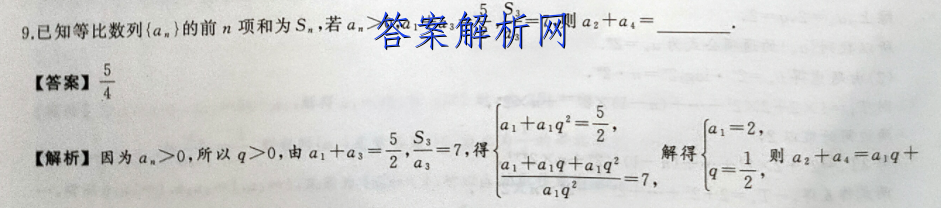 9.已知等比数列{aₙ}的前 n 项和为 Sₙ,若 aₙ> a₁ 5 S₃ = 则 a₂+a₄=______.
答案解析网
【答案】5/4
【解析】因为 aₙ>0,所以 q>0,由 a₁+a₃=5/2,S₃/a₃=7,得{a₁+a₁q²=5/2, (a₁+a₁q+a₁q²)/(a₁q²)=7, 解得{a₁=2, q=1/2, 则 a₂+a₄=a₁q+